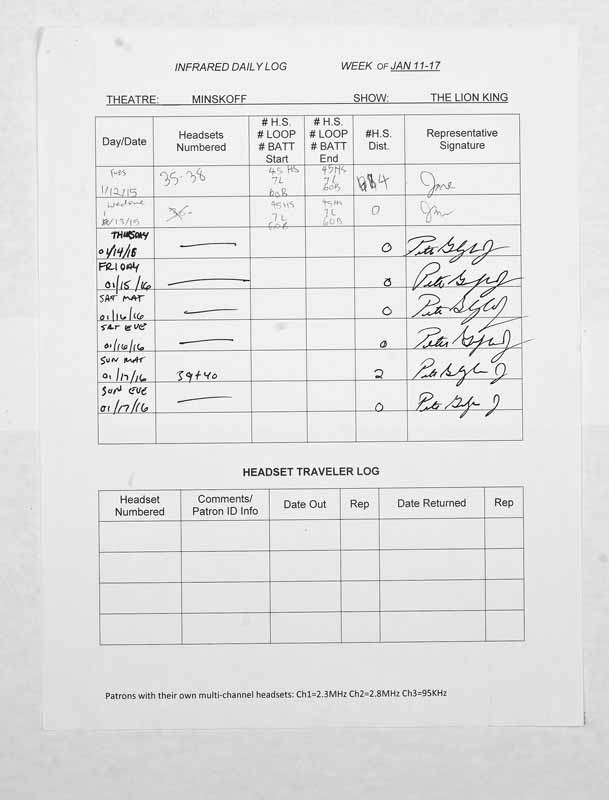 INFRARED DAILY LOG WEEK OF JAN 11-17
THEATRE: MINSKOFF SHOW: THE LION KING
Day/Date Headsets Numbered # H.S. # LOOP # BATT Start # H.S. # LOOP # BATT End #H.S. Dist. Representative Signature
Tues
1/12/15 35-38 45 HS 7L 60B 45HS 7L 60B 4
1/13/15 45HS 7L 60B 45HS 7L 60B 0
THURSDAY
01/14/16 0
FRIDAY
01/15/16 0
SAT MAT
01/16/16 0
SAT EVE
01/16/16 0
SUN MAT
01/17/16 39+40 2
SUN EVE
01/17/16 0
HEADSET TRAVELER LOG
Headset Numbered Comments/ Patron ID Info Date Out Rep Date Returned Rep
Patrons with their own multi-channel headsets: Ch1=2.3MHz Ch2=2.8MHz Ch3=95KHz